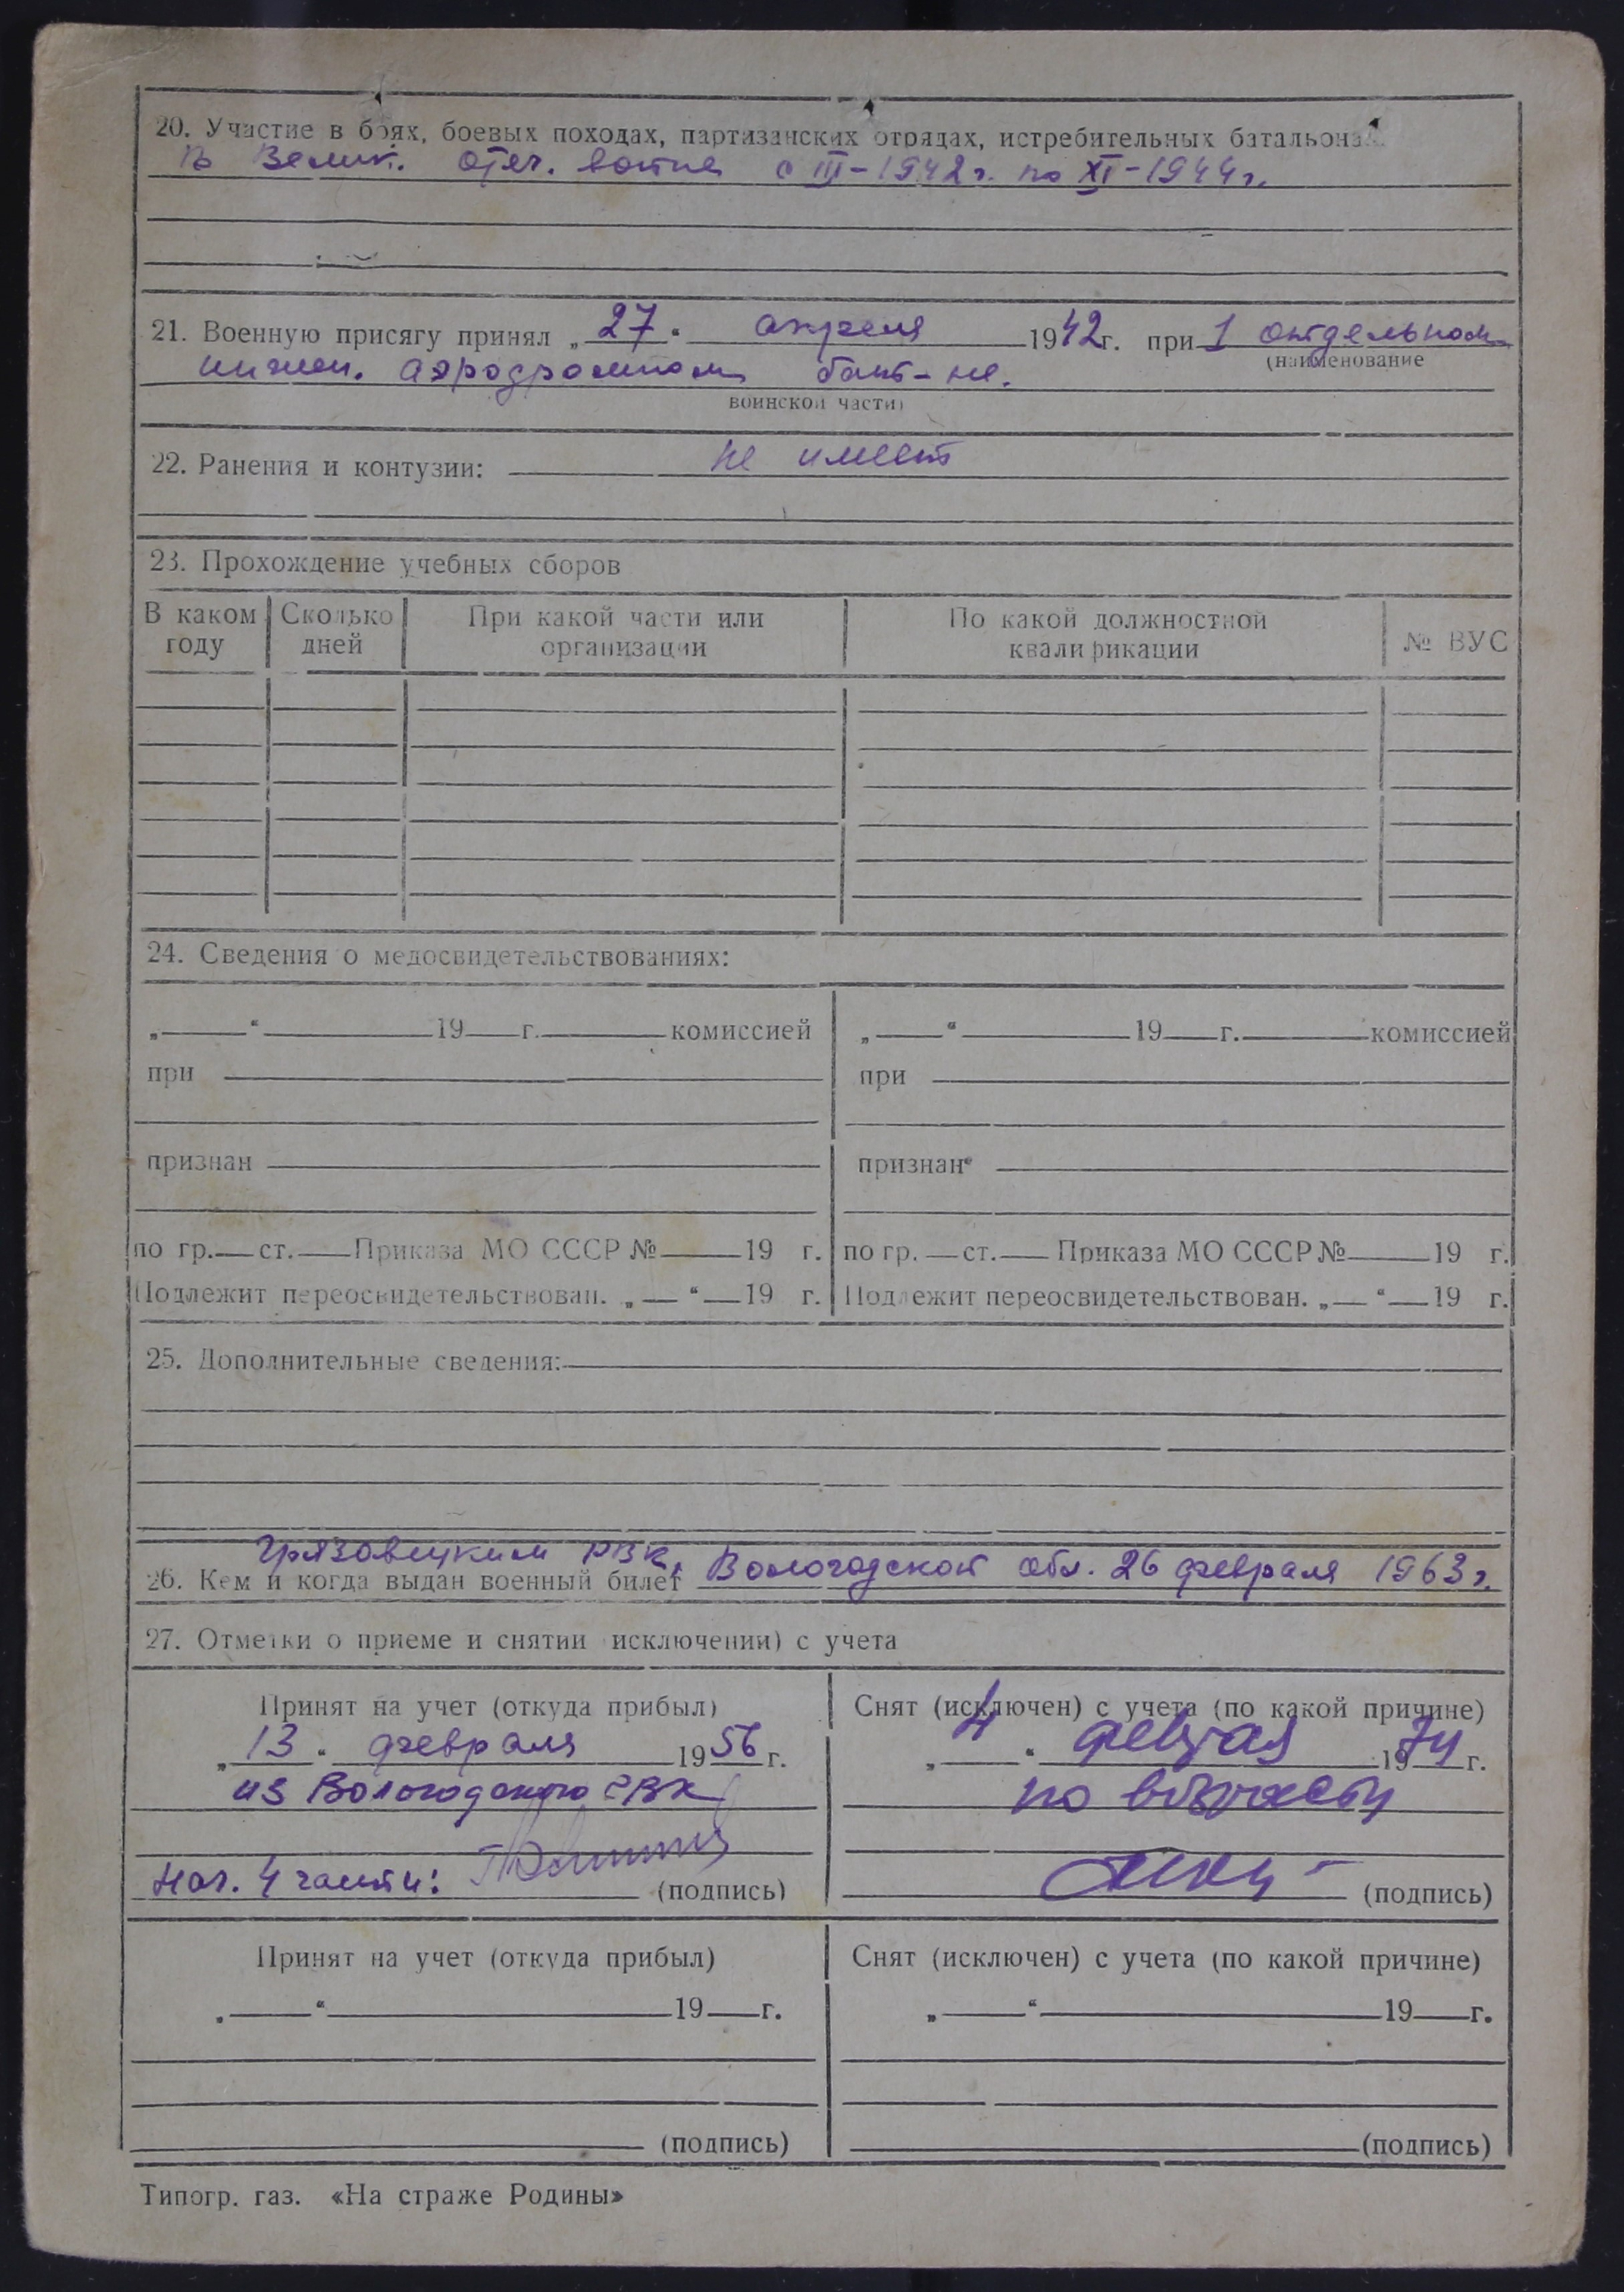 20. Участие в боях, боевых походах, партизанских отрядах, истребительных батальонах
В Велик. Отеч. войне с III-1942 г. по XI-1944 г.
21. Военную присягу принял „27“ апреля 1942 г. при 1 отдельном
(наименование
инжен. аэродромном бат-не.
воинской части)
22. Ранения и контузии: не имеет
23. Прохождение учебных сборов
В каком году Сколько дней При какой части или организации По какой должностной квалификации № ВУС
24. Сведения о медосвидетельствованиях:
„ “ 19 г. комиссией
при
признан
по гр. ст. Приказа МО СССР № 19 г.
Подлежит переосвидетельствован. „ “ 19 г.
„ “ 19 г. комиссией
при
признан
по гр. ст. Приказа МО СССР № 19 г.
Подлежит переосвидетельствован. „ “ 19 г.
25. Дополнительные сведения:
Грязовецким РВК,
26. Кем и когда выдан военный билет Вологодской обл. 26 февраля 1963 г.
27. Отметки о приеме и снятии исключении) с учета
Принят на учет (откуда прибыл)
„13“ февраля 1956 г.
из Вологодского ГВК
Нач. 4 части: (подпись)
Снят (исключен) с учета (по какой причине)
„4“ февраля 1974 г.
по возрасту
(подпись)
Принят на учет (откуда прибыл)
„ “ 19 г.
(подпись)
Снят (исключен) с учета (по какой причине)
„ “ 19 г.
(подпись)
Типогр. газ. «На страже Родины»